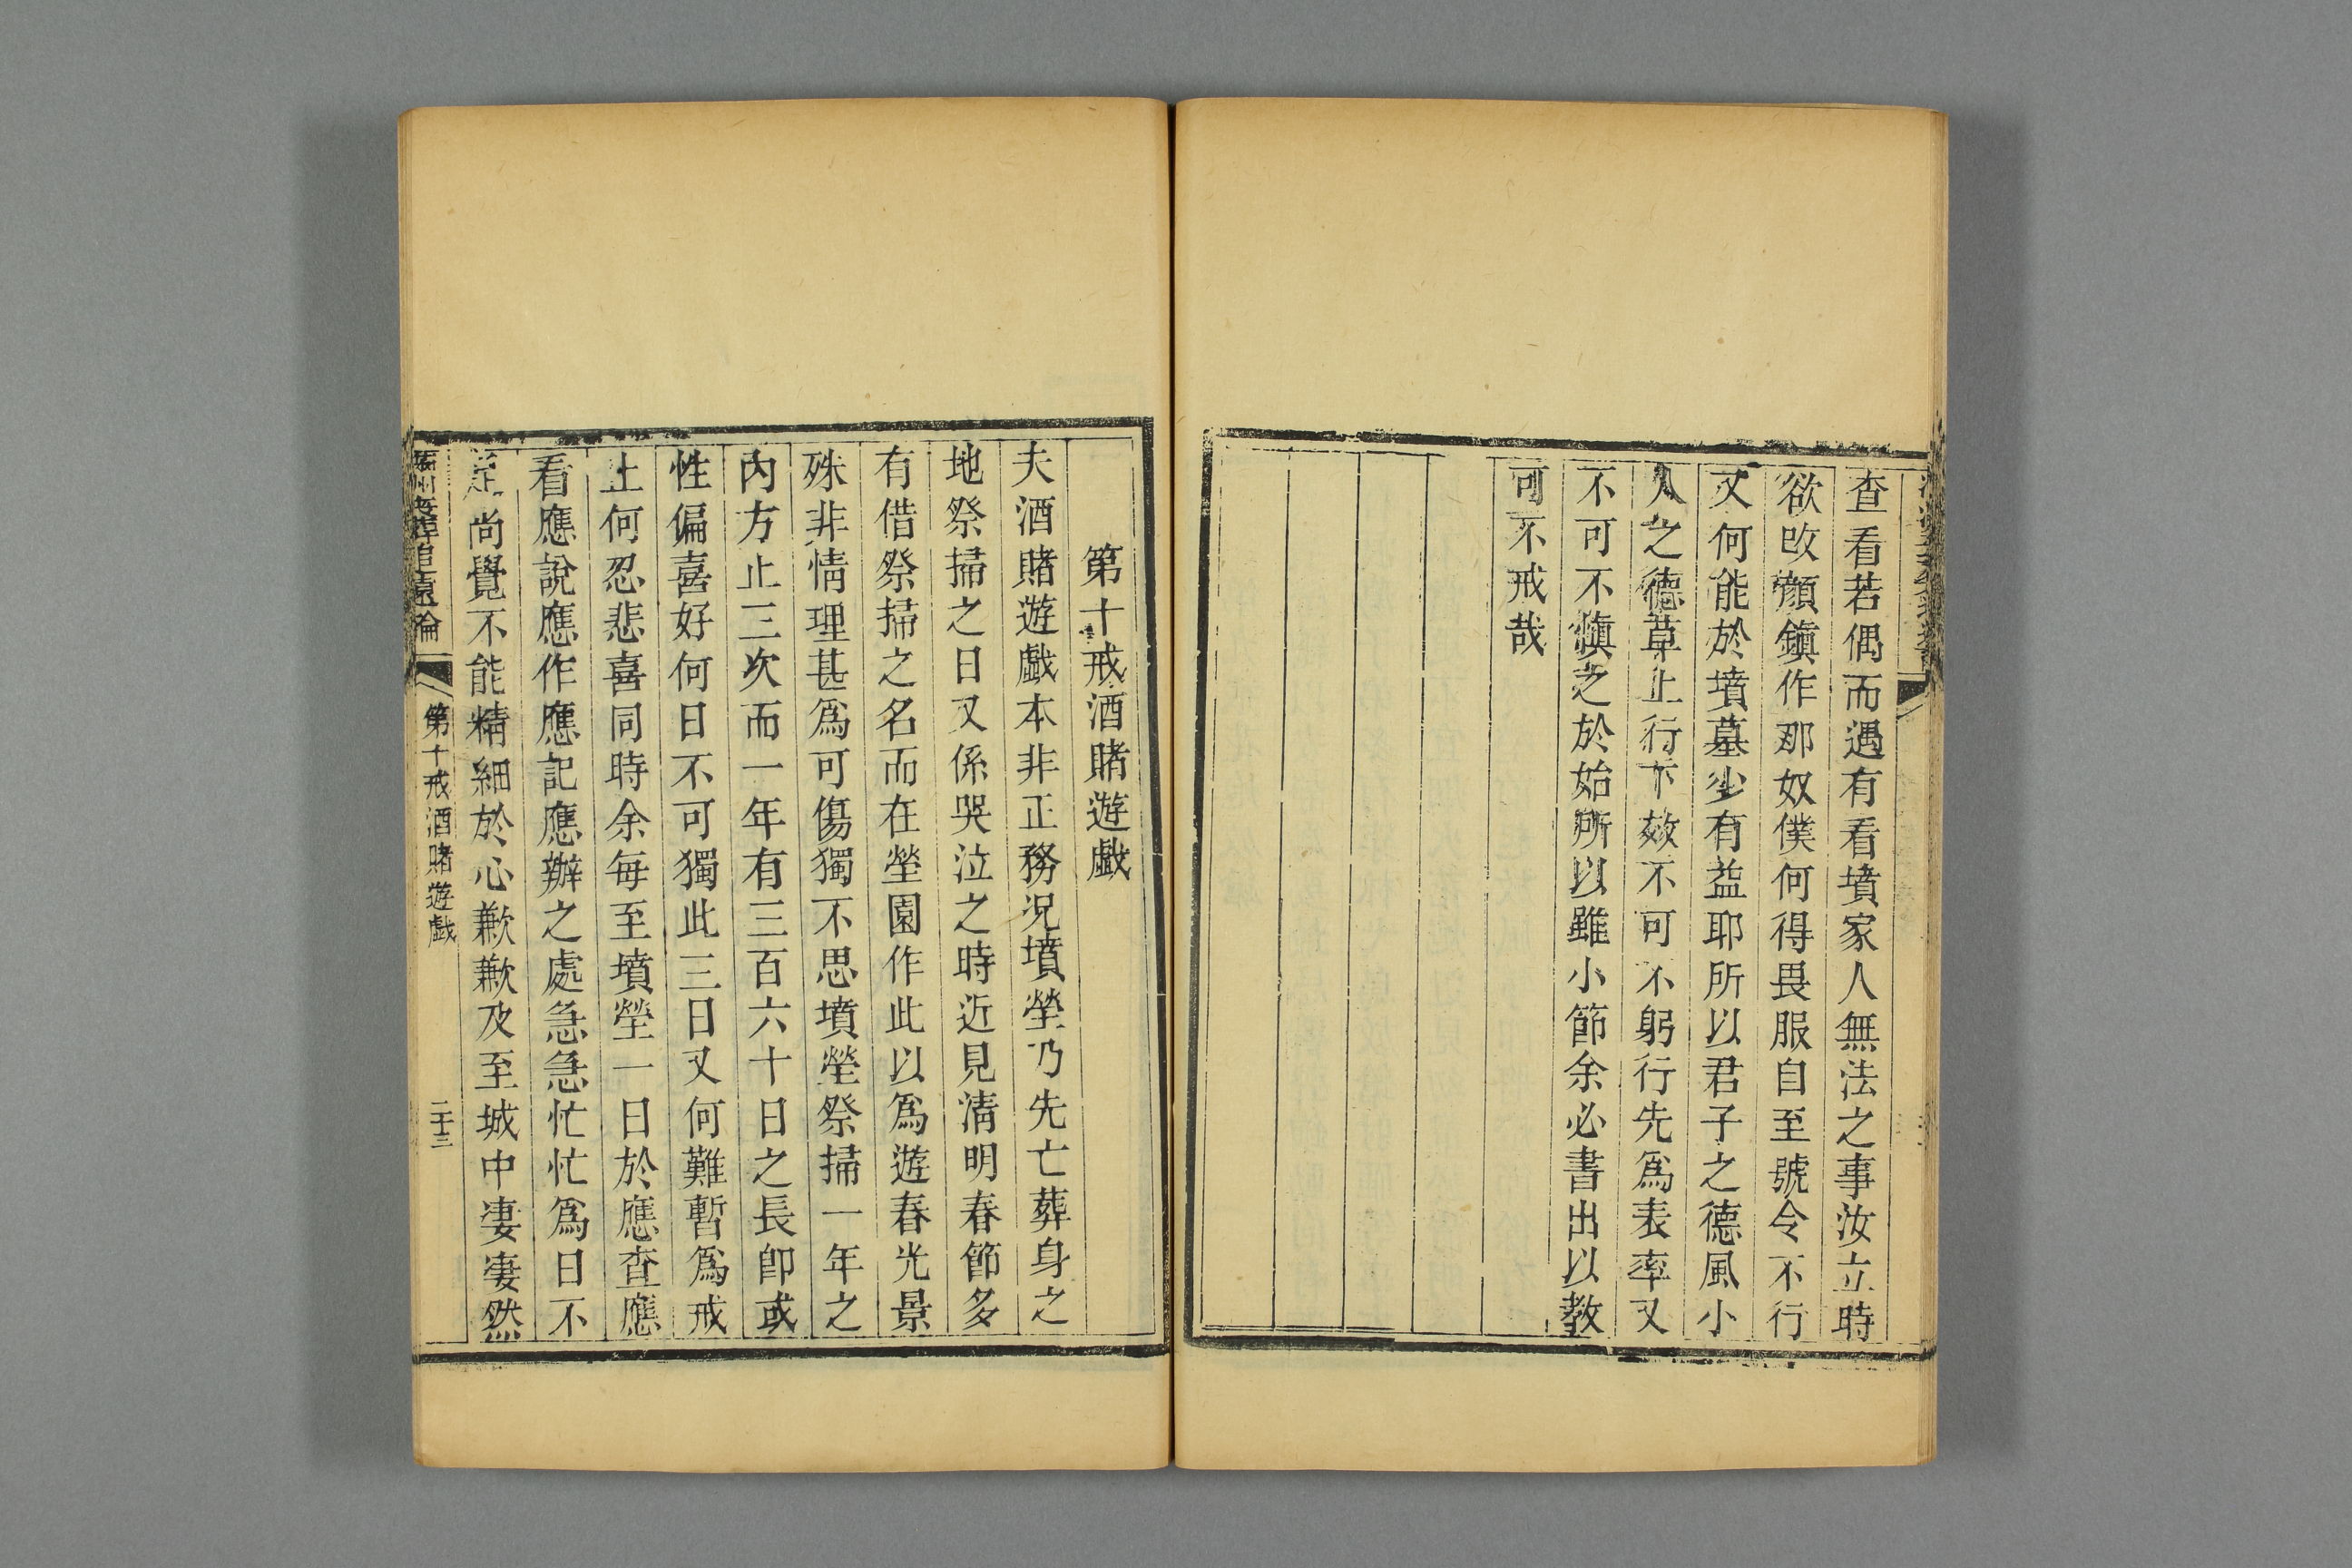 查看若偶而遇有看墳家人無法之事汝立時
欲改顏鎮作那奴僕何得畏服自至號令不行
又何能於墳墓少有益耶所以君子之德風小
人之德草上行下效不可不躬行先爲表率又
不可不愼之於始所以雖小節余必書出以教
可不戒哉
第十戒酒賭遊戲
夫酒賭遊戲本非正務况墳塋乃先亡葬身之
地祭掃之日又係哭泣之時近見清明春節多
有借祭掃之名而在塋園作此以爲遊春光景
殊非情理甚爲可傷獨不思墳塋祭掃一年之
內方止三次而一年有三百六十日之長卽或
性偏喜好何日不可獨此三日又何難暫爲戒
止何忍悲喜同時余每至墳塋一日於應查應
看應說應作應記應辦之處急急忙忙爲日不
足尚覺不能精細於心歉歉及至城中凄凄然
追遠論
第十戒酒賭遊戲
二十三